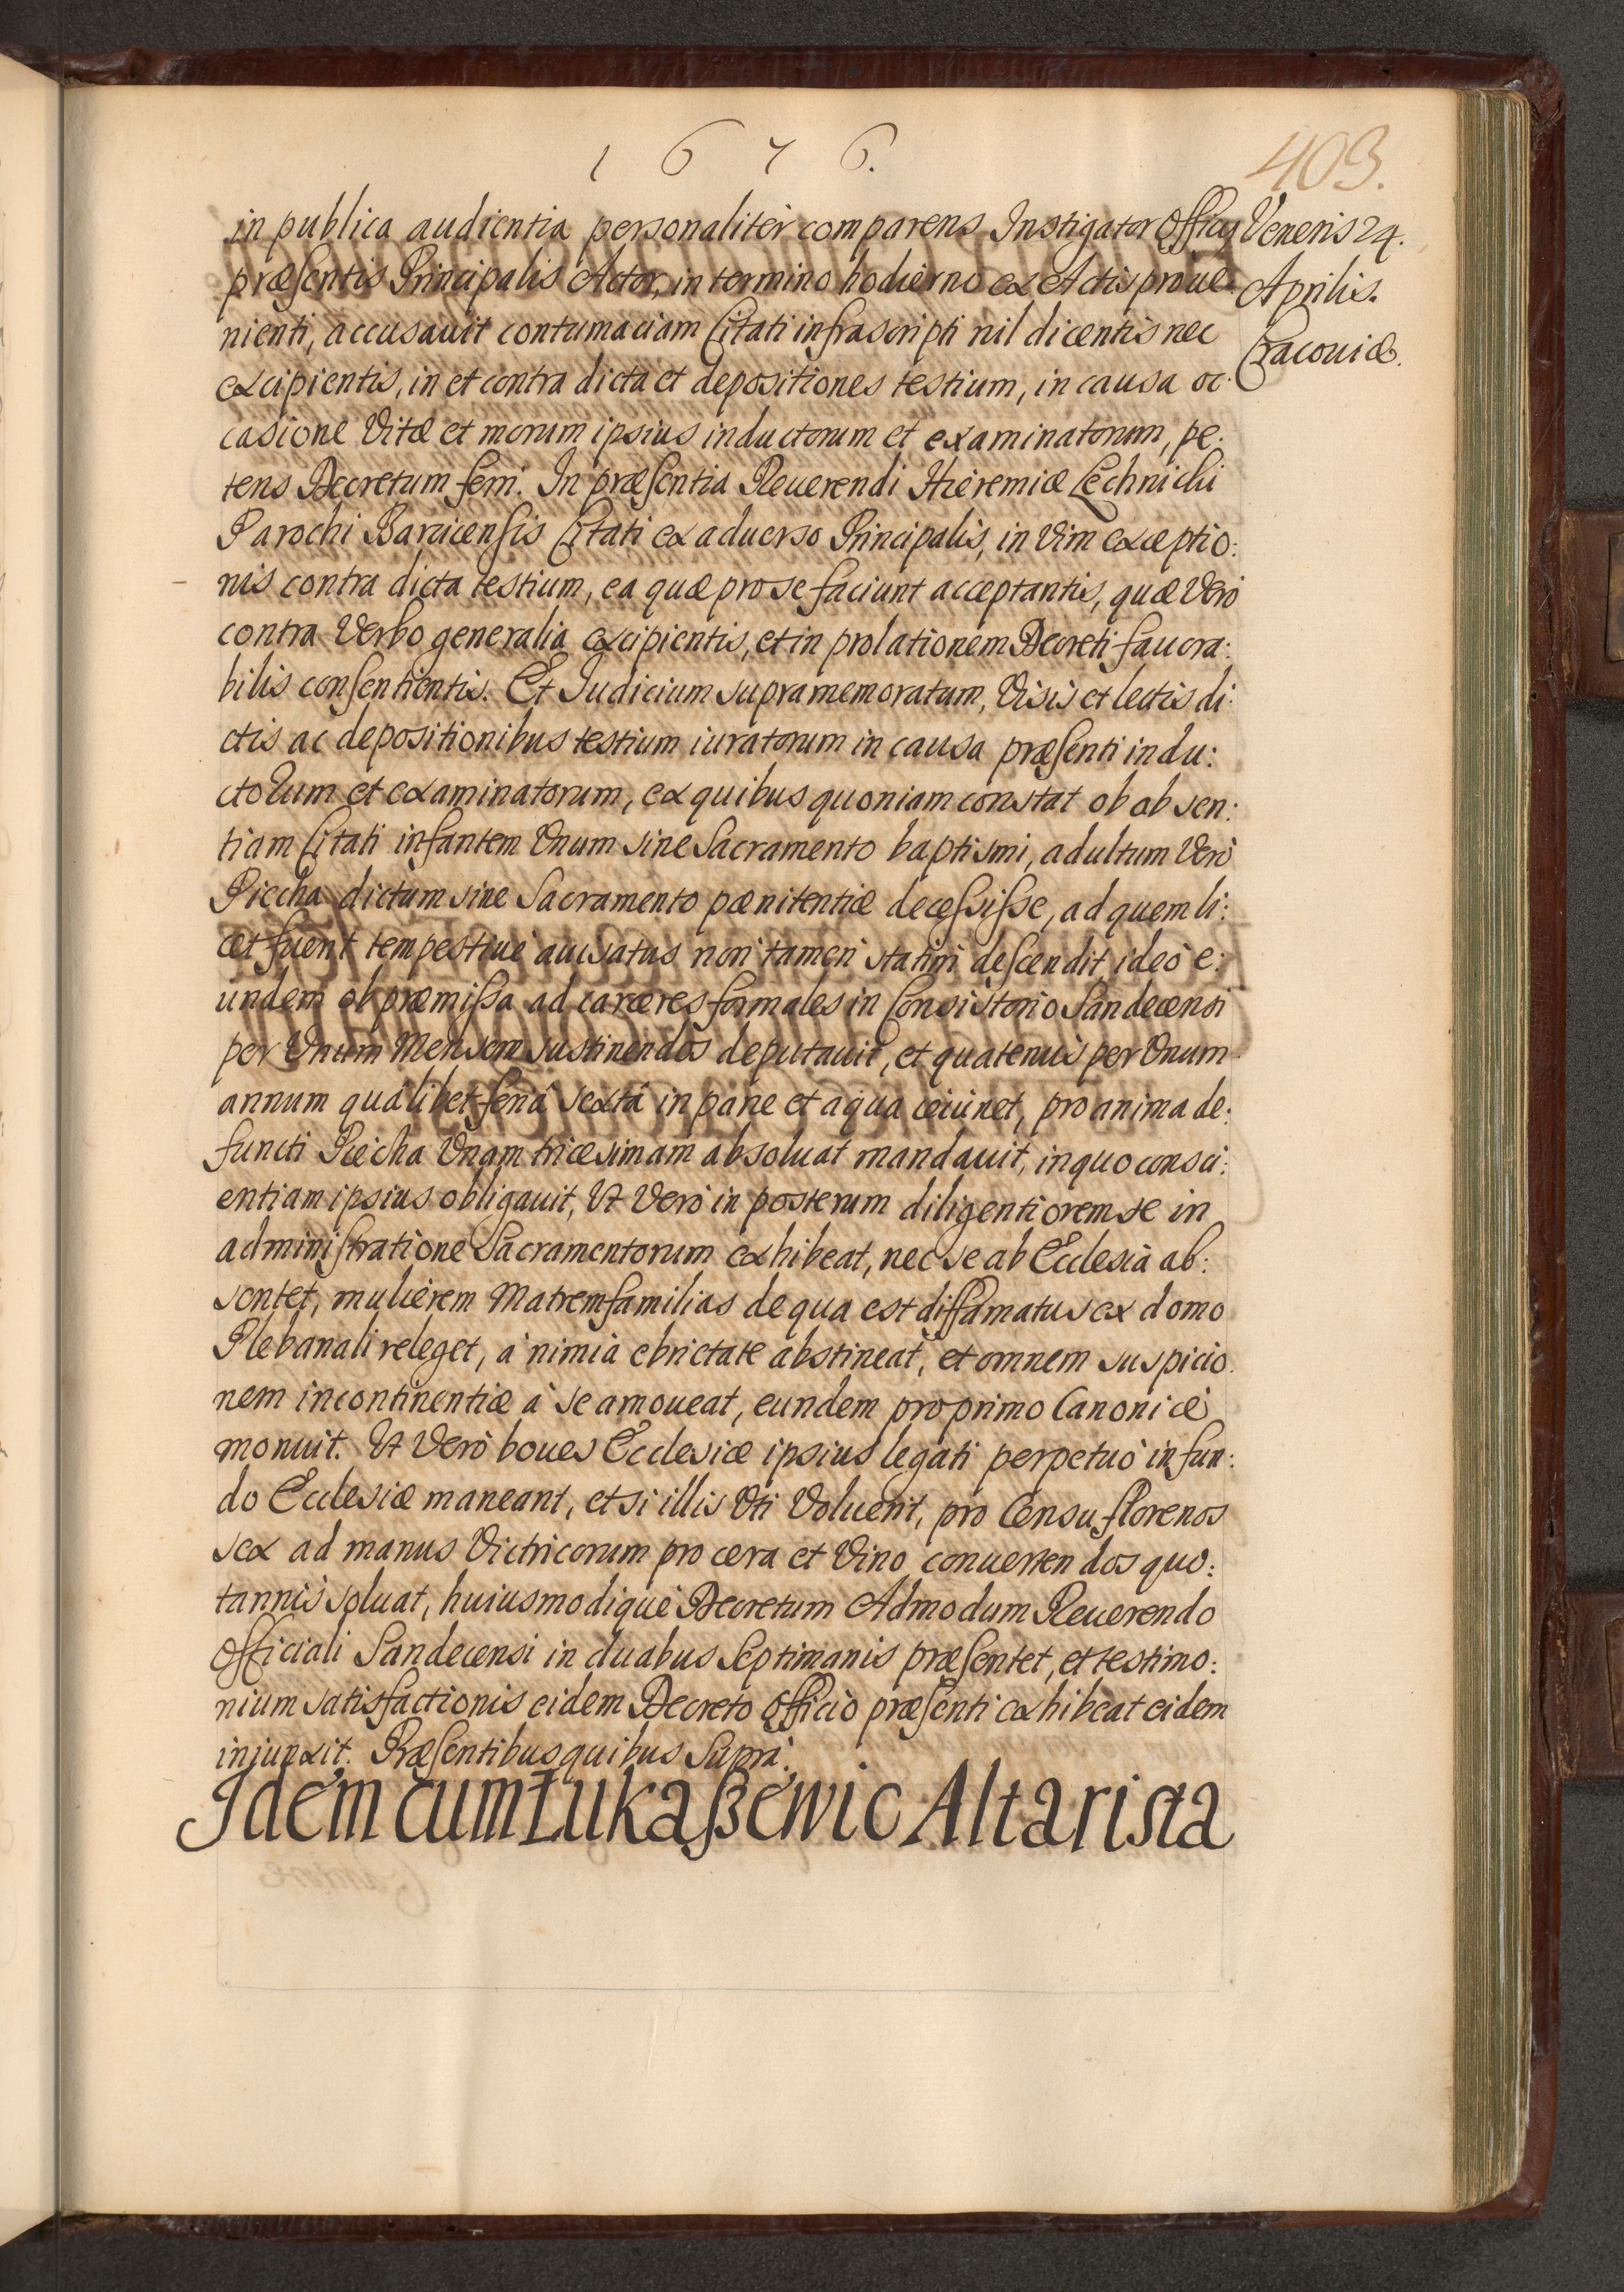 1676.
403.
in publica audientia personaliter comparens Instigator Officij
Veneris 24.
Aprilis.
Cracouiæ.
præsentis Principalis Actor, in termino hodierno ex Actis proue:
nienti, accusauit contumaciam Citati infrascripti nil dicentis nec
excipientis, in et contra dicta et depositiones testium, in causa oc:
casione Vitæ et morum ipsius inductorum et examinatorum, pe:
tens Decretum ferri. In præsentia Reuerendi Hieremiæ Lechnicki
Parochi Barcicensis Citati ex aduerso Principalis, in Vim exceptio:
nis contra dicta testium, ea quæ pro se faciunt acceptantis, quæ Verò
contra Verbo generalia excipientis, et in prolationem Decreti fauora:
bilis consentientis. Et Iudicium supra memoratum, Visis et lectis di:
ctis ac depositionibus testium iuratorum in causa præsenti indu:
ctorum et examinatorum, ex quibus quoniam constat ob absen:
tiam Citati infantem Vnum sine Sacramento baptismi, adultum Verò
Piecha dictum sine Sacramento pænitentiæ decessisse, ad quem li:
cet fuerit tempestiuè auisatus non tamen statim descendit, ideò e:
undem ob præmissa ad carceres formales in Consistorio Sandecensi
per Vnum Mensem sustinendos deputauit, et quatenus per Vnum
annum quâlibet feriâ sextâ in pane et aqua ieiunet, pro anima de:
functi Piecha Vnam tricesimam absoluat mandauit, in quo consci:
entiam ipsius obligauit, Vt Verò in posterum diligentiorem se in
administratione Sacramentorum exhibeat, nec se ab Ecclesià ab:
sentet, mulierem Matremfamilias de qua est diffamatus ex domo
Plebanali releget, à nimià ebrietate abstineat, et omnem suspicio:
nem incontinentiæ à se amoueat, eundem pro primo Canonicè
monuit. Vt Verò boues Ecclesiæ ipsius legati perpetuò in fun:
do Ecclesiæ maneant, et si illis Vti Voluerit, pro Censu florenos
sex ad manus Victricorum pro cera et Vino conuertendos quo:
tannis soluat, huiusmodique Decretum Admodum Reuerendo
Officiali Sandecensi in duabus Septimanis præsentet, et testimo:
nium satisfactionis eidem Decreto Officio præsenti exhibeat eidem
injunxit. Præsentibus quibus Supra.
Idem cum Łukaßewic Altarista